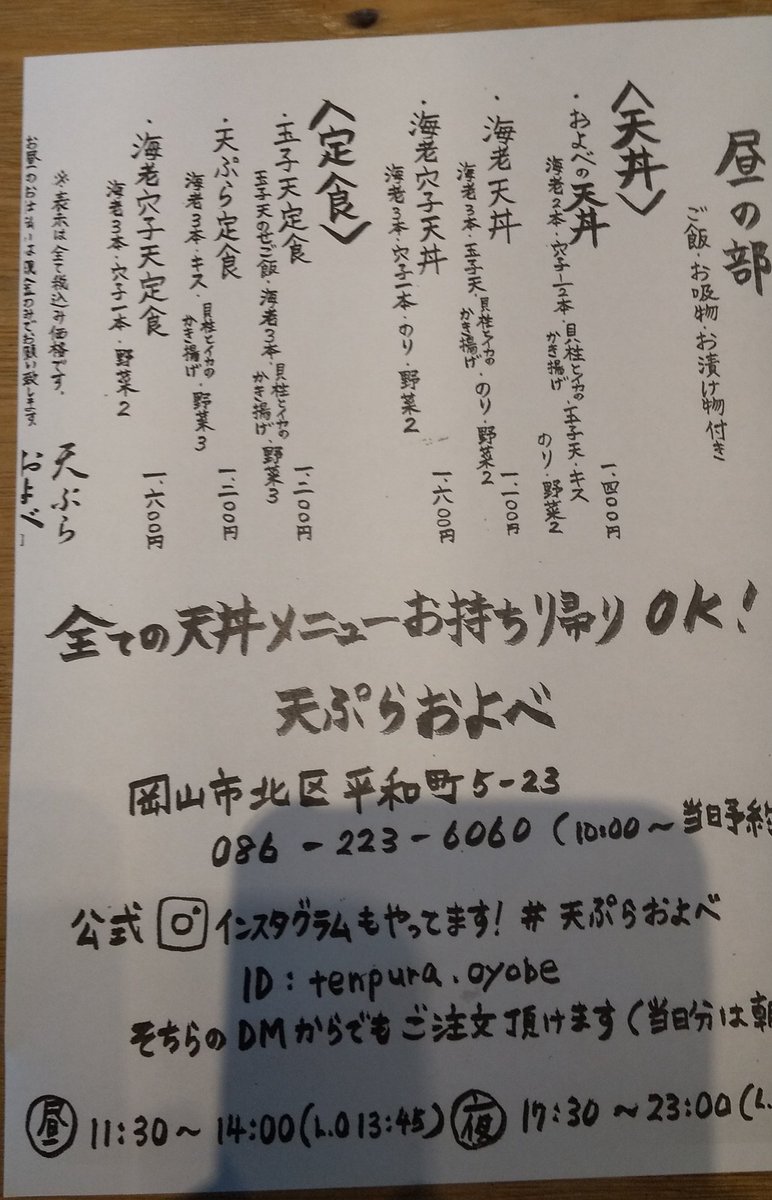 昼の部
ご飯・お吸物・お漬け物付き
〈天丼〉
・およべの天丼 一、四〇〇円
海老2本・穴子1/2本・貝柱とイカのかき揚げ・玉子天・キス
のり・野菜2
・海老天丼 一、一〇〇円
海老3本・玉子天・貝柱とイカのかき揚げ・のり・野菜2
・海老穴子天丼 一、六〇〇円
海老3本・穴子一本・のり・野菜2
〈定食〉
・玉子天定食 一、二〇〇円
玉子天のせご飯・海老3本・貝柱とイカのかき揚げ・野菜3
・天ぷら定食 一、二〇〇円
海老3本・キス・貝柱とイカのかき揚げ・野菜3
・海老穴子天定食 一、六〇〇円
海老3本・穴子一本・野菜2
※表示は全て税込み価格です。
お昼のお支払いは現金のみで、お願い致します。
天ぷら
およべ
全ての天丼メニューお持ち帰りOK!
天ぷらおよべ
岡山市北区平和町5-23
086-223-6060(10:00〜当日予約
公式 インスタグラムもやってます!#天ぷらおよべ
ID:tenpura.oyobe
そちらのDMからでもご注文頂けます(当日分は朝
昼 11:30〜14:00(L.O 13:45) 夜 17:30〜23:00(L.